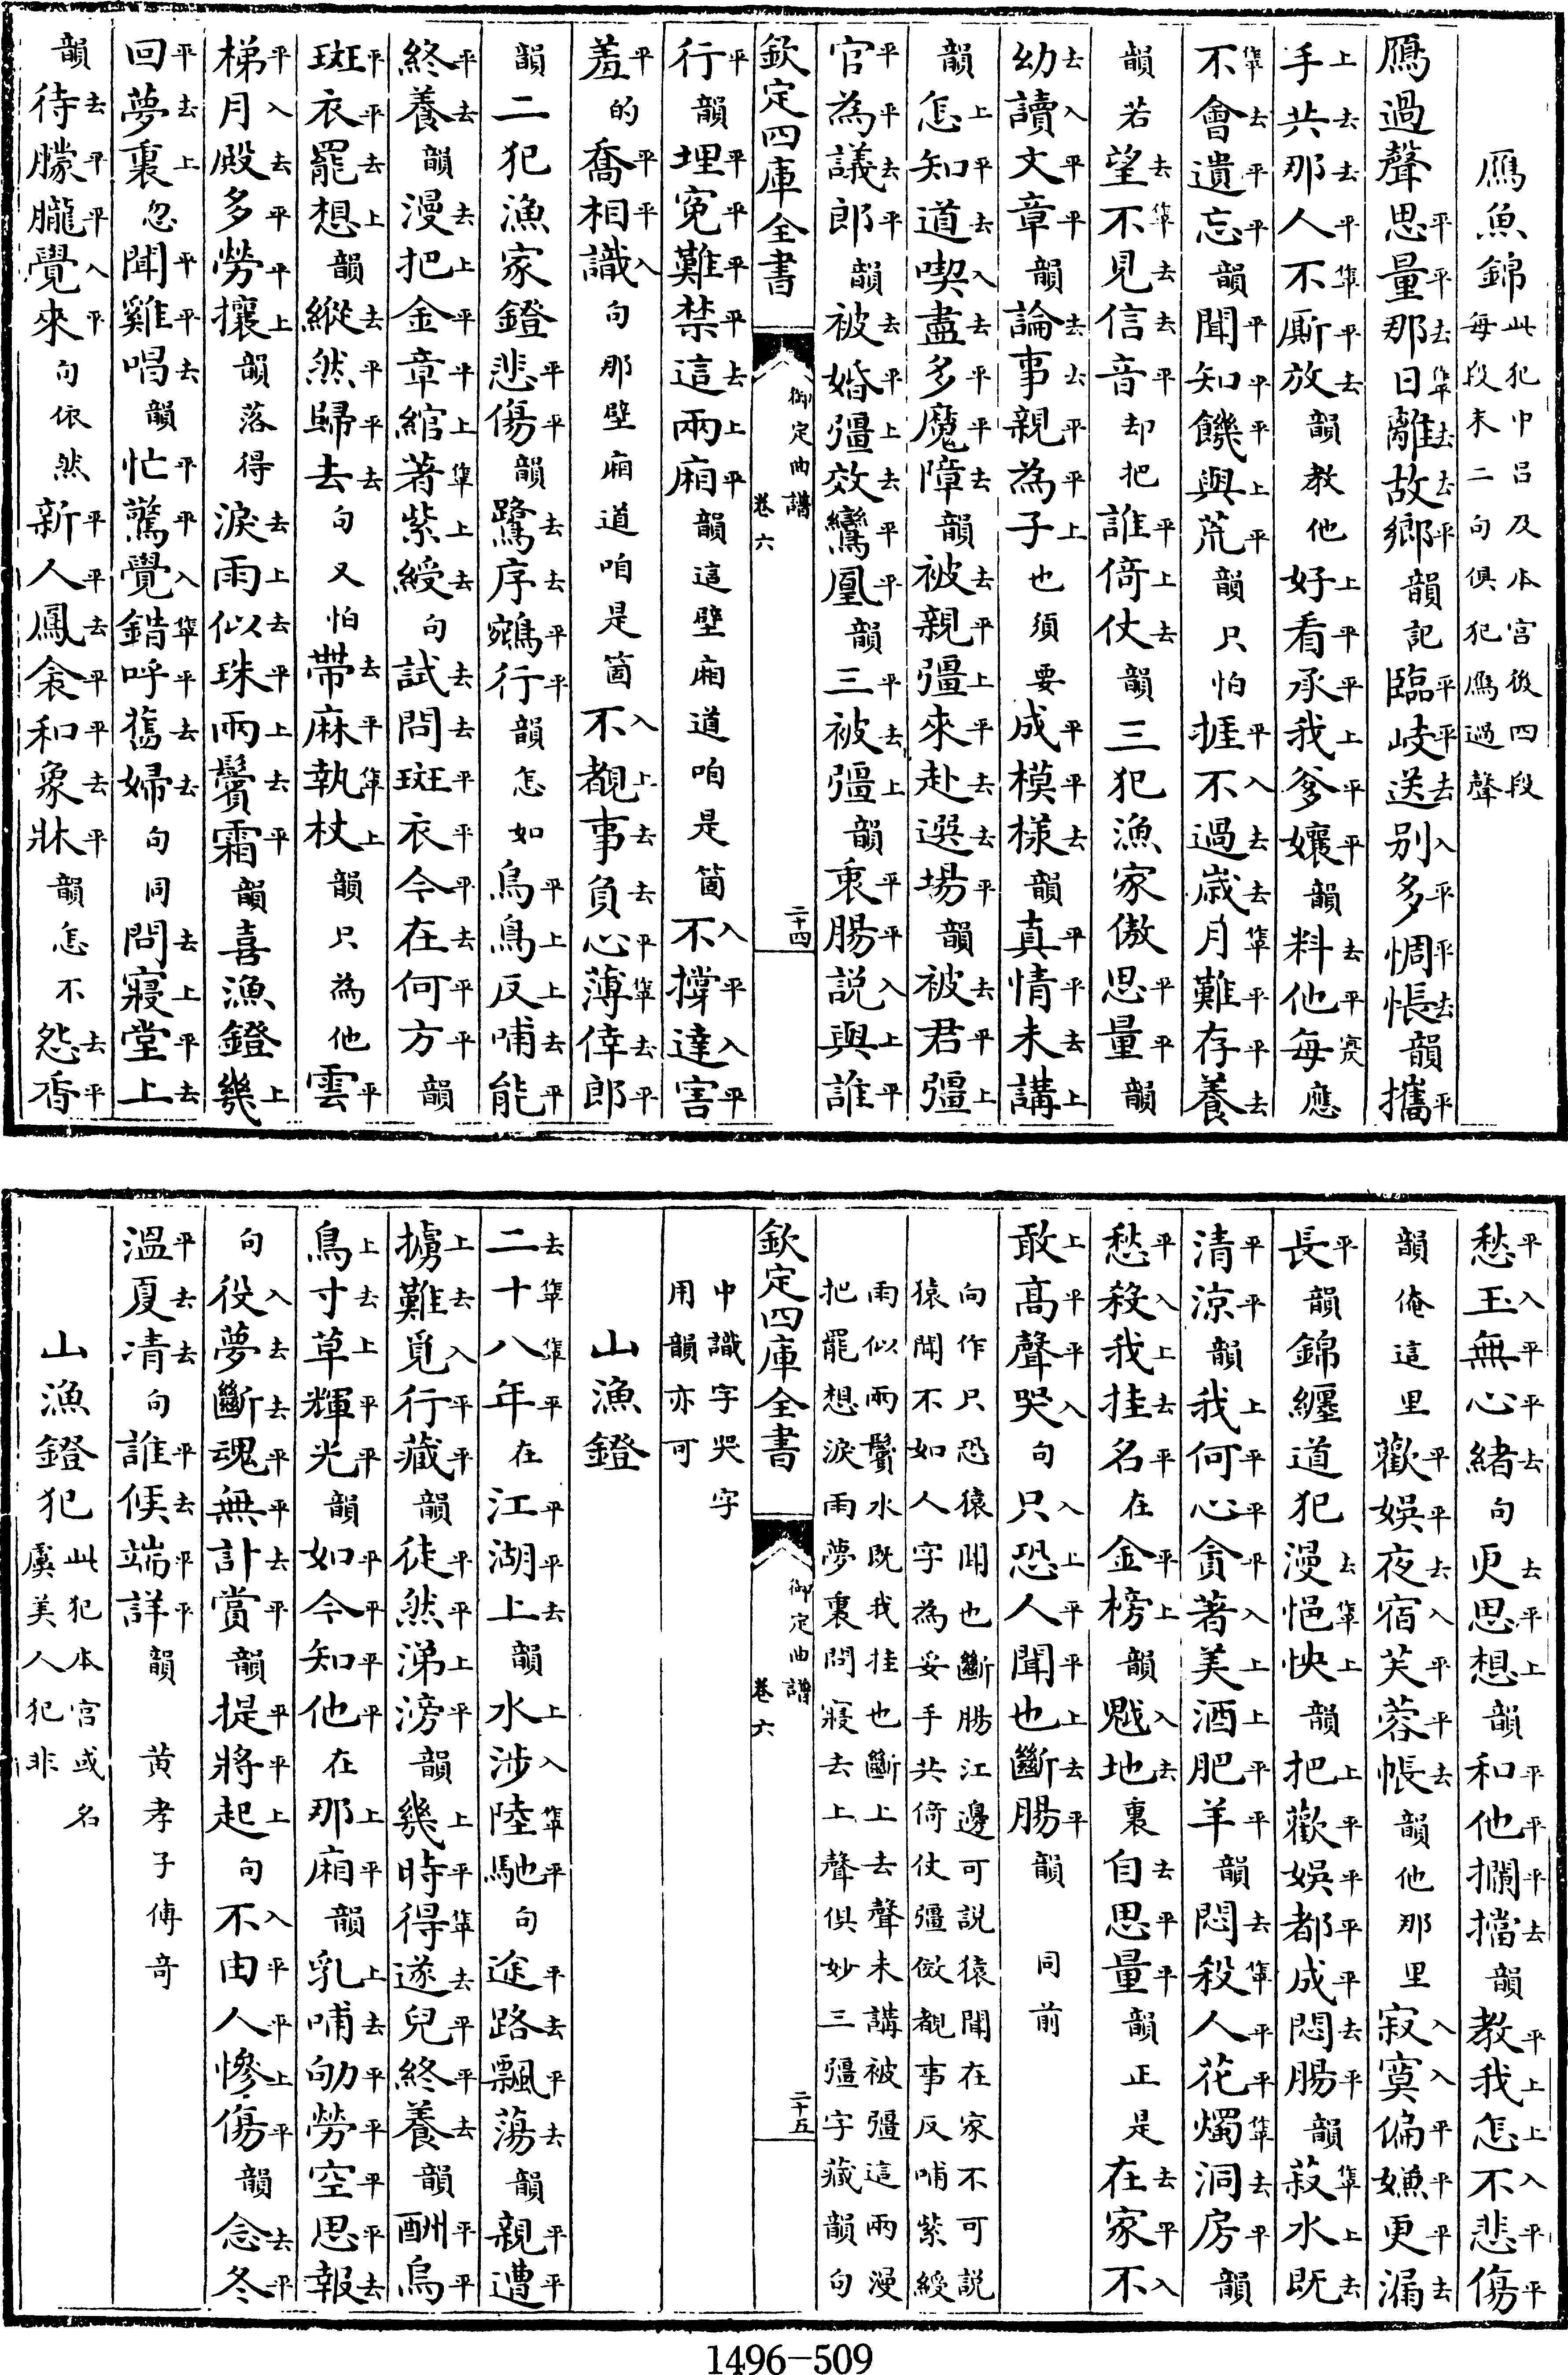 鴈魚錦此犯中呂及本宮後四段每段末二句俱犯鴈過聲
鴈過聲思量那日離故鄉韻記臨岐送别多惆悵韻攜
手共那人不厮放韻教他好看承我爹孃韻料他每應
不會遺忘韻聞知饑與荒韻只怕捱不過歲月難存養
韻若望不見信音却把誰倚仗韻三犯漁家傲思量韻
幼讀文章韻論事親為子也須要成模様韻真情未講
韻怎知道喫盡多魔障韻被親彊來赴選場韻被君彊
官為議郎韻被婚彊效鸞凰韻三被彊韻衷腸説與誰
欽定四庫全書
御定曲譜
卷六
二十四
行韻埋寃難禁這兩廂韻這壁廂道咱是箇不撐達害
羞的喬相識句那壁廂道咱是箇不覩事負心薄倖郎
韻二犯漁家鐙悲傷韻鷺序鵷行韻怎如烏鳥反哺能
終養韻漫把金章綰著紫綬句試問斑衣今在何方韻
斑衣罷想韻縱然歸去句又怕帶麻執杖韻只為他雲
梯月殿多勞攘韻落得淚雨似珠兩鬢霜韻喜漁鐙幾
回夢裏忽聞雞唱韻忙驚覺錯呼舊婦句同問寢堂上
韻待朦朧覺來句依然新人鳳衾和象牀韻怎不怨香
愁玉無心緒句更思想韻和他攔擋韻教我怎不悲傷
韻俺這里歡娯夜宿芙蓉帳韻他那里寂寞偏嫌更漏
長韻錦纏道犯漫悒怏韻把歡娯都成悶腸韻菽水既
清涼韻我何心貪著美酒肥羊韻悶殺人花燭洞房韻
愁殺我挂名在金榜韻魆地裏自思量韻正是在家不
敢高聲哭句只恐人聞也斷腸韻　同前
向作只恐猿聞也斷腸江邊可説猿聞在家不可説
猿聞不如人字為妥手共倚仗彊傚覩事反哺紫綬
雨似兩鬢水既我挂也斷上去聲未講被彊這兩漫
把罷想淚雨夢裏問寢去上聲俱妙三彊字藏韻句
欽定四庫全書
御定曲譜
卷六
二十五
中識字哭字
用韻亦可
山漁鐙
二十八年在江湖上韻水涉陸馳句途路飄蕩韻親遭
擄難覓行藏韻徒然涕滂韻幾時得遂兒終養韻酬烏
鳥寸草輝光韻如今知他在那廂韻乳哺劬勞空思報
句役夢斷魂無計賞韻提將起句不由人慘傷韻念冬
溫夏凊句誰候端詳韻　黃孝子傳奇
山漁鐙犯此犯本宮或名虞美人犯非
1496-509